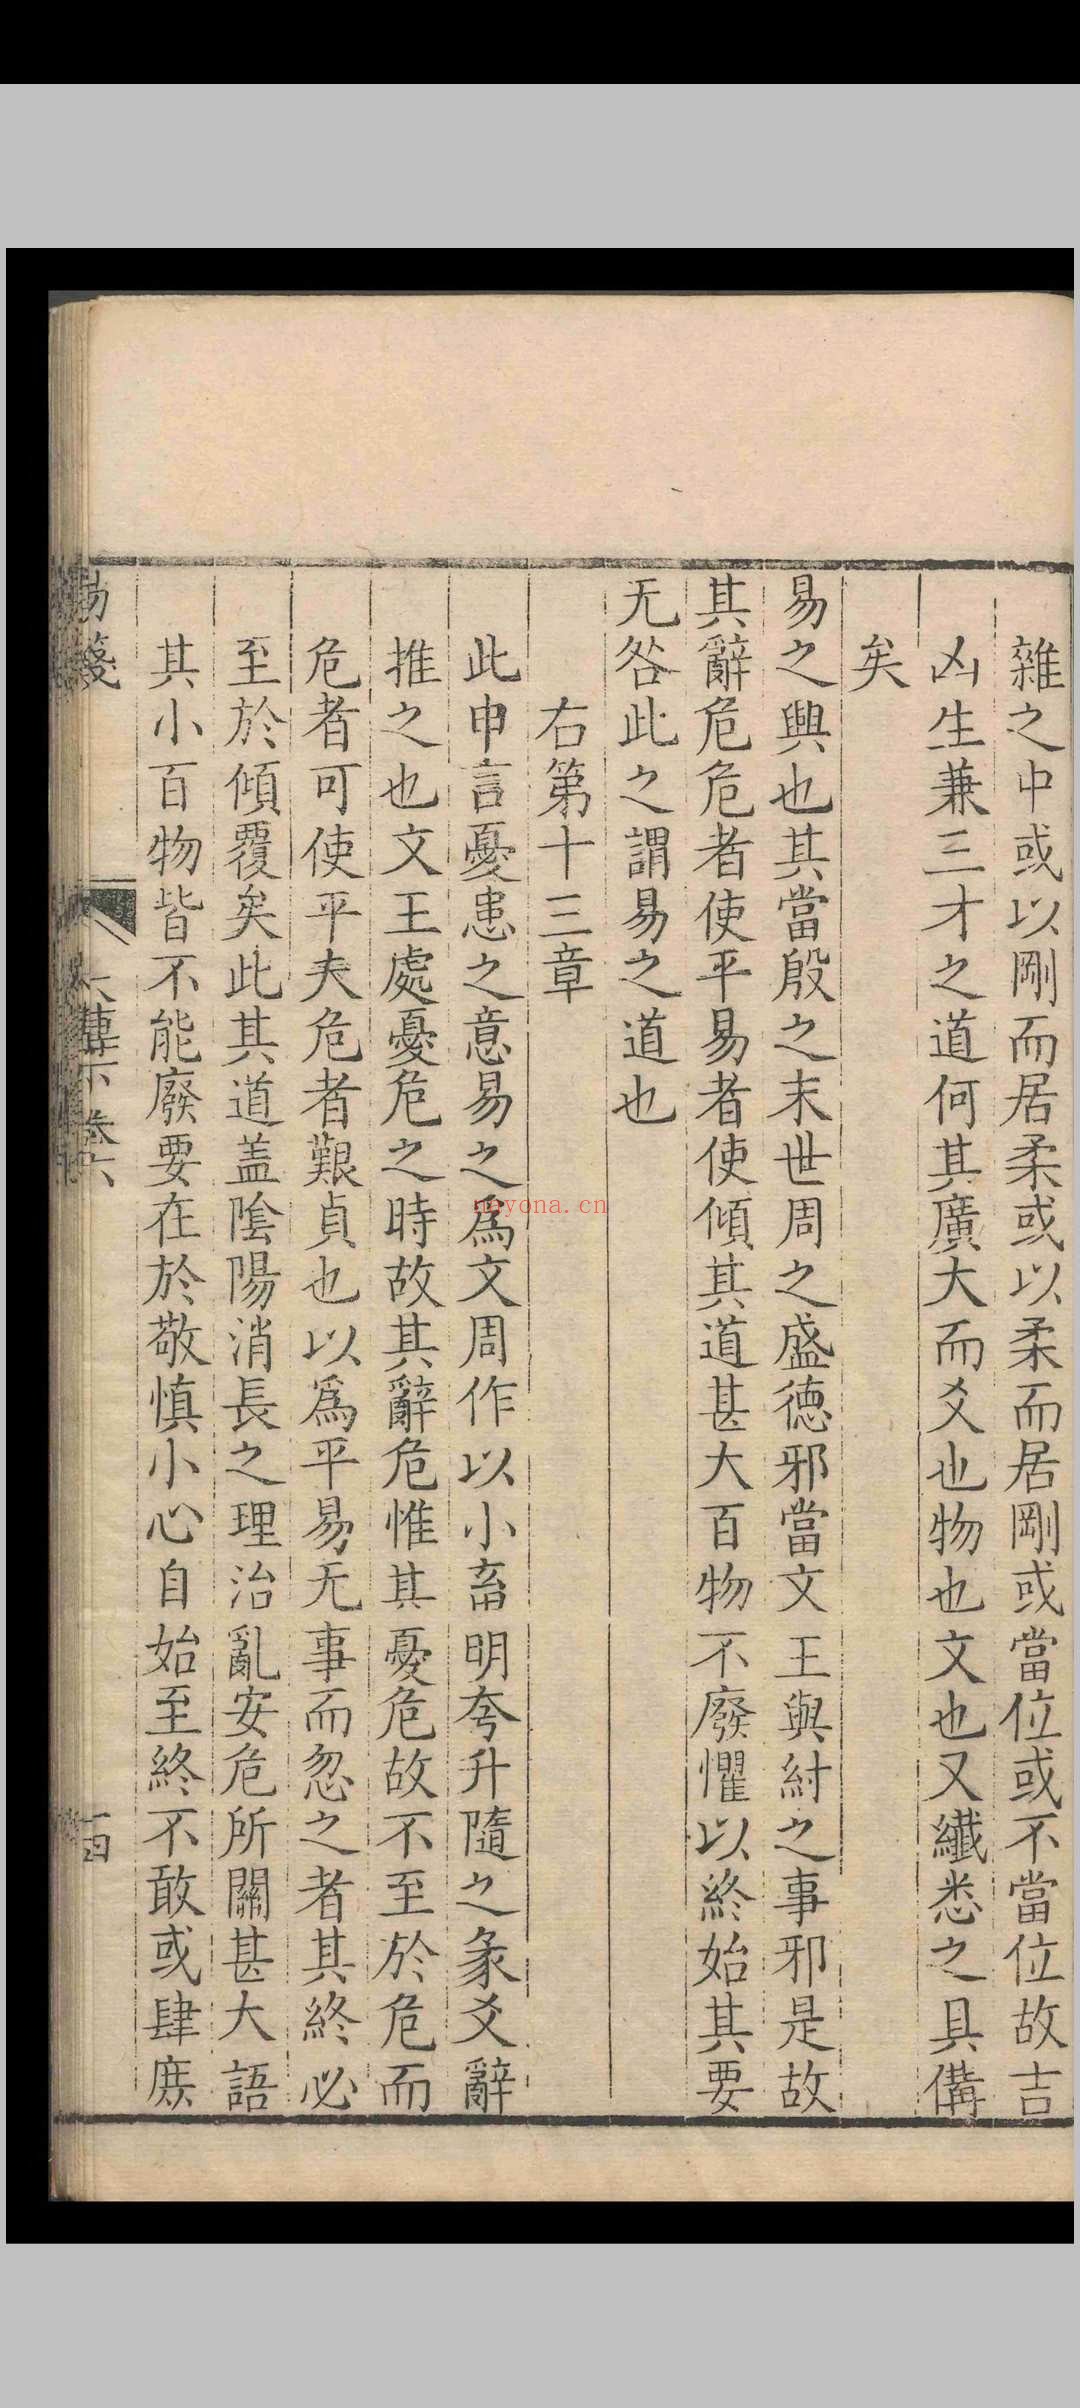 雜之中或以剛而居柔或以柔而居剛或當位或不當位故吉
凶生兼三才之道何其廣大而爻也物也文也又纖悉之具備
矣
易之興也其當殷之末世周之盛德邪當文王與紂之事邪是故
其辭危危者使平易者使傾其道甚大百物不廢懼以終始其要
无咎此之謂易之道也
右第十三章
此申言憂患之意易之爲文周作以小畜明夸升隨之彖爻辭
推之也文王處憂危之時故其辭危惟其憂危故不至於危而
危者可使平夫危者艱貞也以爲平易无事而忽之者其終必
至於傾覆矣此其道蓋陰陽消長之理治亂安危所關甚大語
其小百物皆不能廢要在於敬慎小心自始至終不敢或肆庶
易箋
大傳下卷六
十四
myona.cn